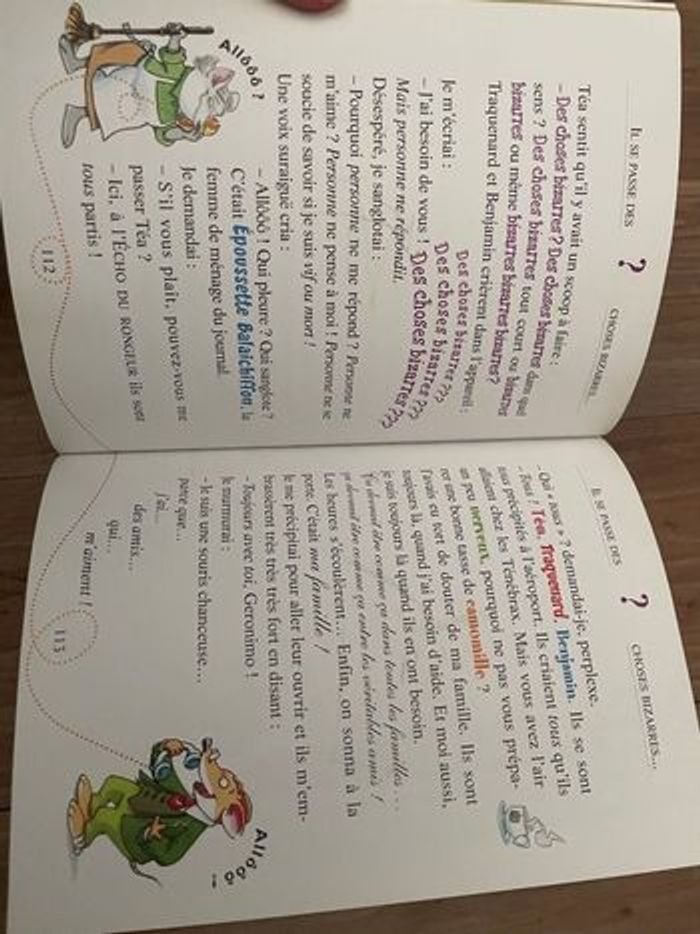 IL SE PASSE DES ? CHOSES BIZARRES...
Téa sentit qu'il y avait un scoop à faire :
– Des choses bizarres ? Des choses bizarres dans quel
sens ? Des choses bizarres tout court ou bizarres
bizarres ou même bizarres bizarres bizarres ?
Traquenard et Benjamin crièrent dans l'appareil :
Des choses bizarres ???
Des choses bizarres ???
Des choses bizarres ???
Je m'écriai :
– J'ai besoin de vous !
Mais personne ne répondit.
Désespéré, je sanglotai :
– Pourquoi personne ne me répond ? Personne ne
m'aime ? Personne ne pense à moi ! Personne ne se
soucie de savoir si je suis vif ou mort !
Une voix suraiguë cria :
– Allôôô ! Qui pleure ? Qui sanglote ?
C'était Époussette Balaichiffon, la
femme de ménage du journal.
Je demandai :
– S'il vous plaît, pouvez-vous me
passer Téa ?
– Ici, à l'ÉCHO DU RONGEUR ils sont
tous partis !
Allôôô ?
112
IL SE PASSE DES ? CHOSES BIZARRES...
– Qui « tous » ? demandai-je, perplexe.
– Tous ! Téa, Traquenard, Benjamin. Ils se sont
tous précipités à l'aéroport. Ils criaient tous qu'ils
allaient chez les Ténébrax. Mais vous avez l'air
un peu nerveux, pourquoi ne pas vous prépa-
rer une bonne tasse de camomille ?
J'avais eu tort de douter de ma famille. Ils sont
toujours là, quand j'ai besoin d'aide. Et moi aussi,
je suis toujours là quand ils en ont besoin.
Ça devrait être comme ça dans toutes les familles...
ça devrait être comme ça entre les véritables amis !
Les heures s'écoulèrent... Enfin, on sonna à la
porte. C'était ma famille !
Je me précipitai pour aller leur ouvrir et ils m'em-
brassèrent très très très fort en disant :
– Toujours avec toi, Geronimo !
Je murmurai :
– Je suis une souris chanceuse...
parce que...
j'ai...
des amis...
qui...
m'aiment !
Allô
113